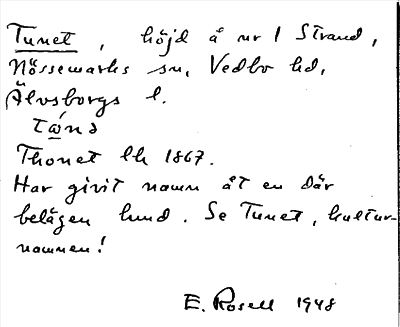 Tunet, höjd å nr 1 Strand,
Nössemarks sn, Vedbo hd,
Älvsborgs l.
tώnə
Thonet Ek 1867.
Har givit namn åt en där
belägen lund. Se Tunet, kultur-
namnen!
E. Rosell 1948